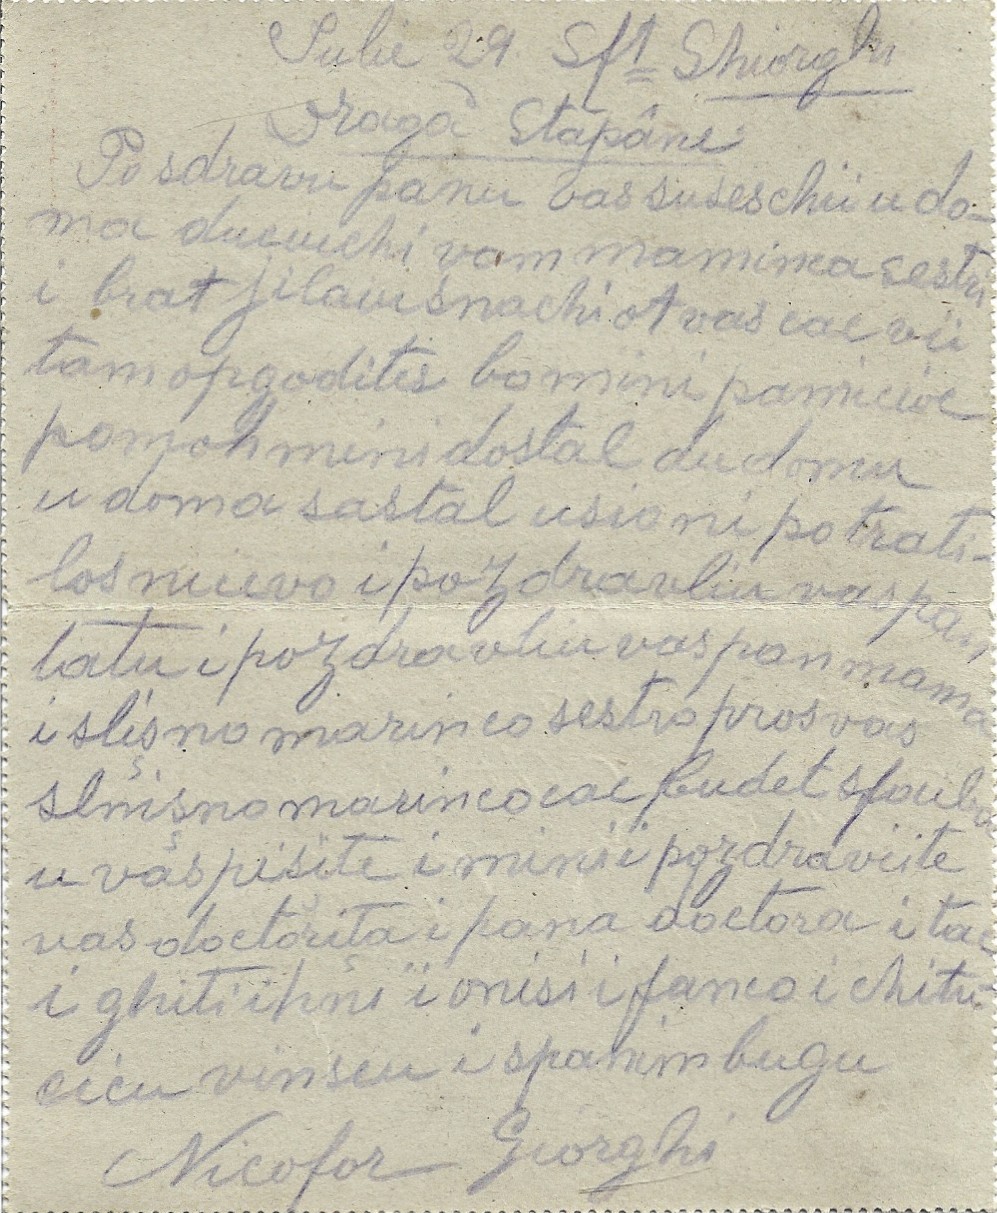 Iulie 29 Sft Ghiorghi
Dragă Stapâne
Posdravu panu vas suseschii u do-
ma ducuichi vam maminca sestri
i brat jilaiu snachi ot vas cac vii
tam opgodites bo mini pamicioc
pomoh mini dostal du domu
u doma sastal usio ni potrati-
los nicevo i pozdravliu vas pan
tatu i pozdravliu vas pan mama
i slișno marinco sestro pros vas
slnișno marinco cac budet sfaulbo
u vas pișite i minii pozdraviite
vas doctorița i pana doctora i tac
i ghiti ihni i onisi i fanco i chitu-
cicu vinscu i spanim bugu
Nicofor Giorghi